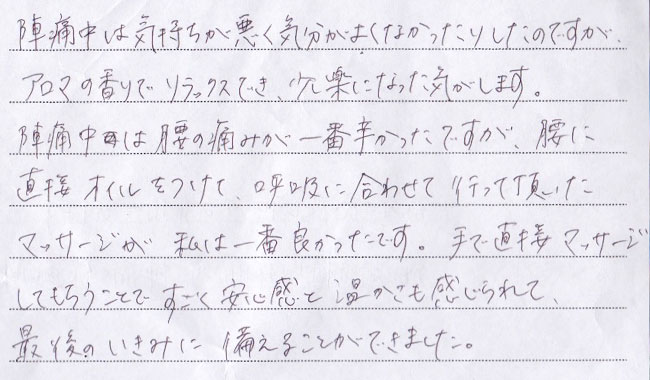 陣痛中は気持ちが悪く気分がよくなかったりしたのですが、
アロマの香りでリラックスでき、少し楽になった気がします。
陣痛中は腰の痛みが一番辛かったですが、腰に
直接オイルをつけて、呼吸に合わせて行って頂いた
マッサージが私は一番良かったです。手で直接マッサージ
してもらうことですごく安心感と温かさも感じられて、
最後のいきみに備えることができました。